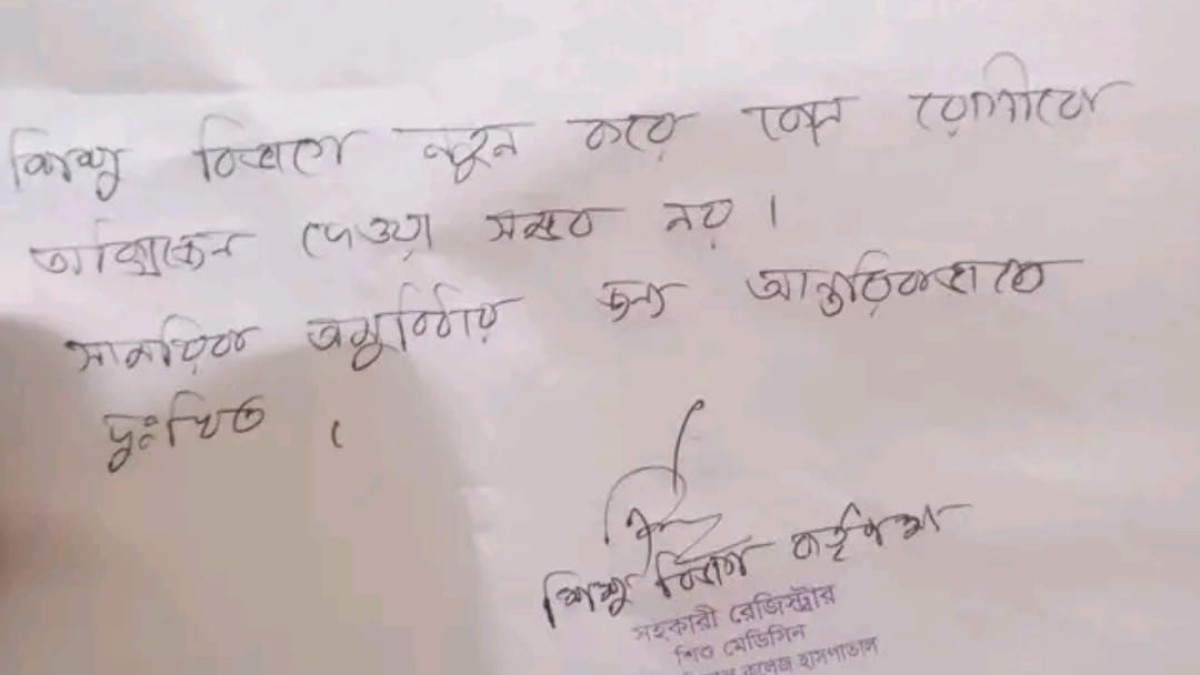 শিশু বিভাগে নতুন করে কোন রোগীকে
অক্সিজেন দেওয়া সম্ভব নয়।
সাময়িক অসুবিধার জন্য আন্তরিকভাবে
দুঃখিত ।
শিশু বিভাগ কর্তৃপক্ষ
সহকারী রেজিস্ট্রার
শিশু মেডিসিন
কলেজ হাসপাতাল